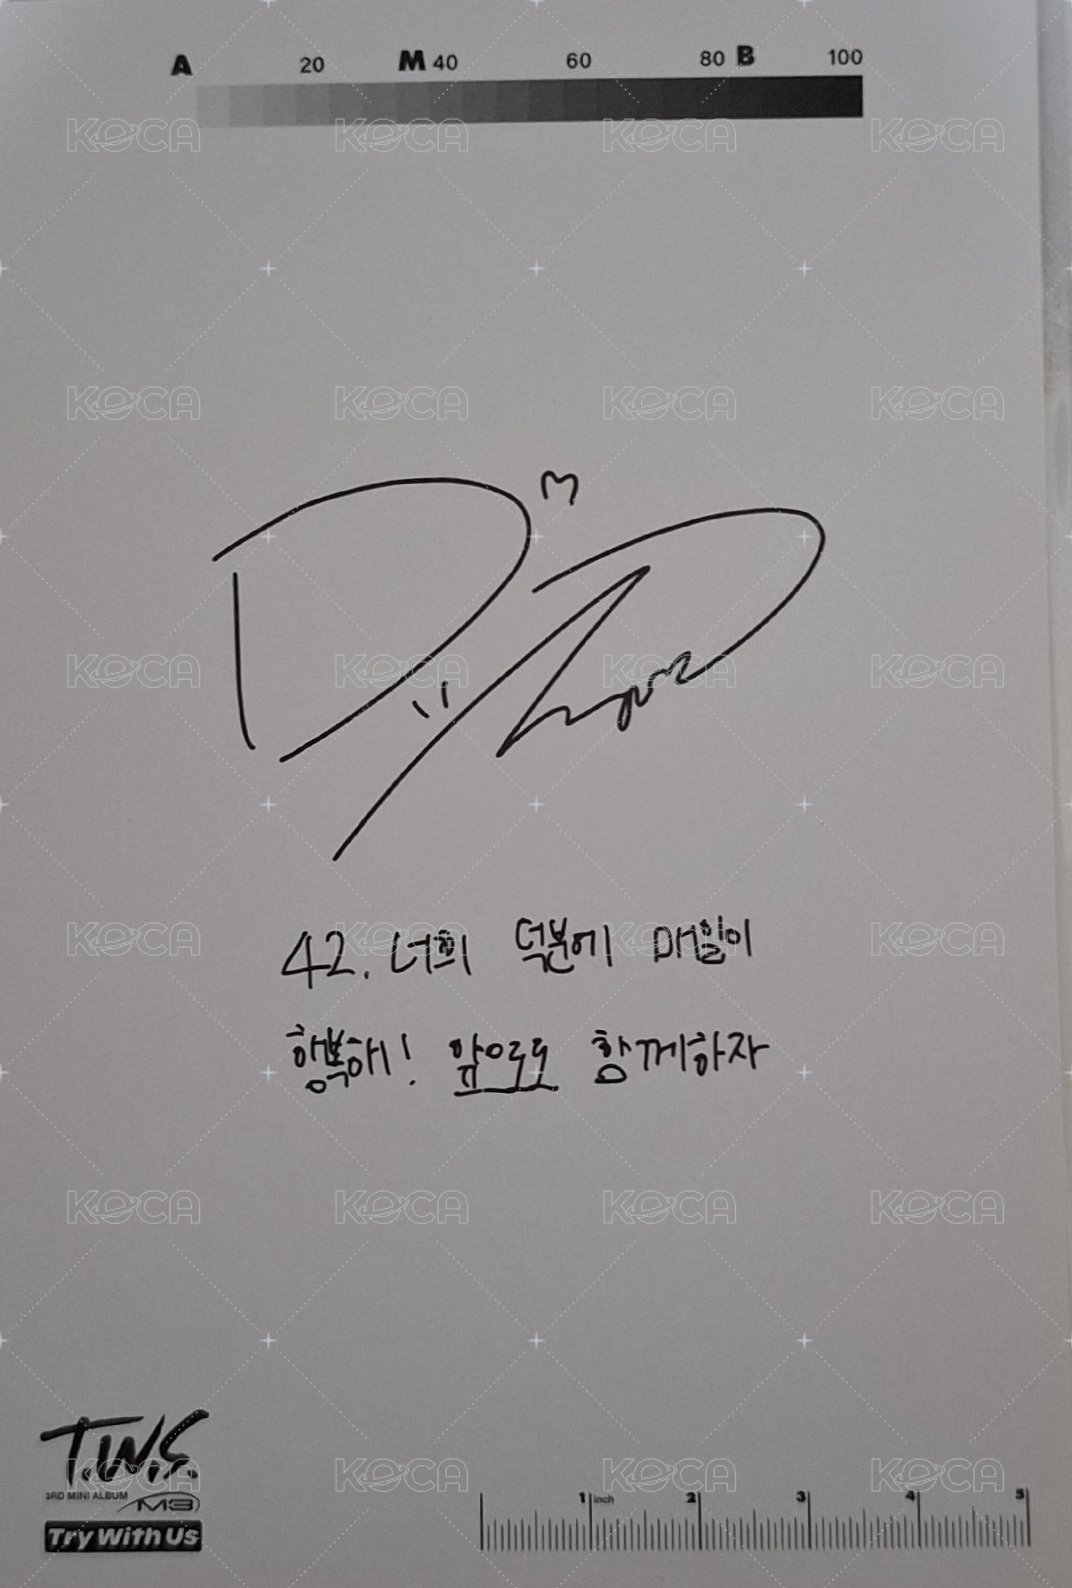 A 20 M 40 60 80 B 100
42. 너희 덕분에 매일이
행복해! 앞으로도 함께하자
T.W.S.
3RD MINI ALBUM
Try With Us
1 inch 2 3 4 5
KOCA KOCA KOCA KOCA
KOCA KOCA KOCA KOCA
KOCA KOCA KOCA KOCA
KOCA KOCA KOCA KOCA
KOCA KOCA KOCA KOCA
KOCA KOCA KOCA KOCA